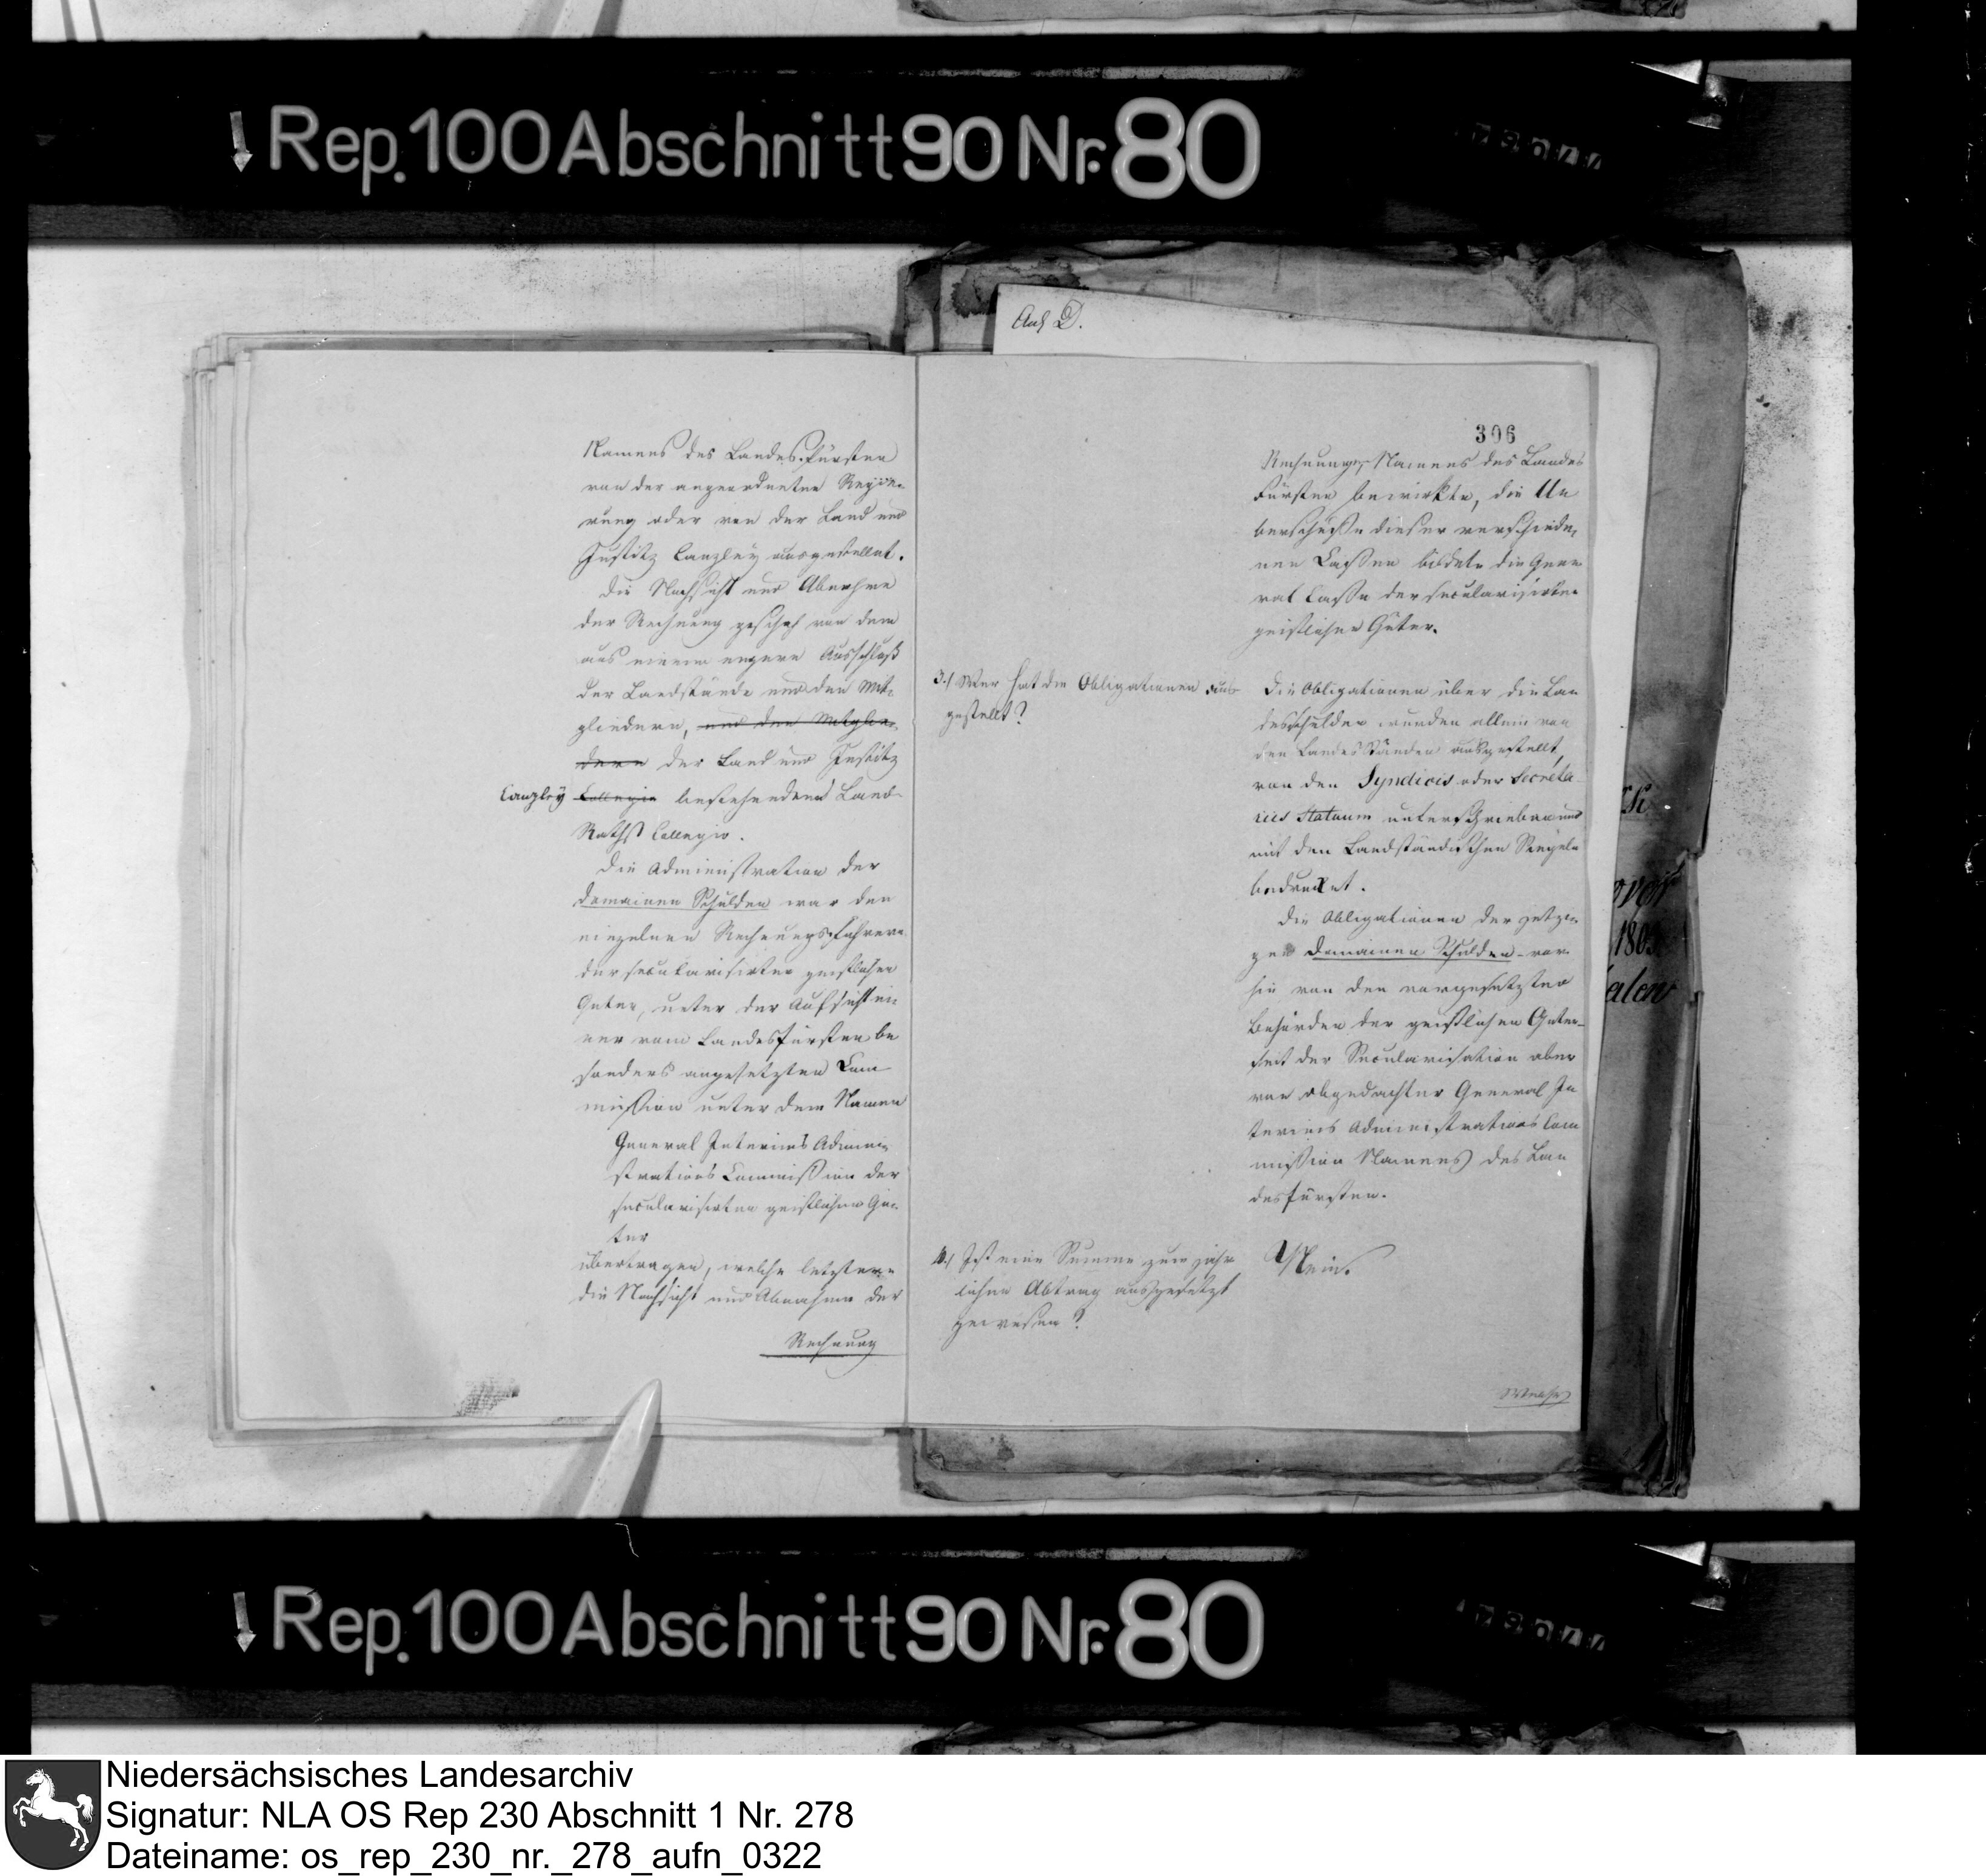 Rep. 100 Abschnitt 90 Nr. 80
Anl D.
Namens des Landes-Fürsten
von der angeordneten Regie-
rung oder von der Land und
Justitz Canzley ausgestellet.
Die Nachsicht und Abnahme
der Rechnung geschah von dem
aus einem engern Ausschuß
der Landstände und den Mit-
gliedern, und den Mitglie-
dern der Land und Justitz
Canzley Collegio bestehenden Land-
Raths Collegio.
Die Administration der
Domainen Schulden war den
einzelnen Rechnungsführern
der secularisirten geistlichen
Güter, unter der Aufsicht ei-
ner vom Landesfürsten be
sonders angesetzten Com-
mission unter dem Namen
General Interims Admini-
strations Commission der
secularisirten geistlichen Gü-
ter
übertragen, welche letztere
die Nachsicht und Abnahme der
Rechnung
306
Rechnung, Namens des Landes
Fürsten bewirkte, die Ue
berschüsse dieser verschiede-
nen Cassen bildete die Gene
ral Casse der secularisirten
geistlichen Güter.
3.) Wer hat die Obligationen aus-
gestellt?
Die Obligationen über die Lan
desschulden wurden allein von
den Landesständen ausgestellt,
von den Syndicis oder Secreta-
riis Statuum unterschrieben und
mit den Landständischen Siegeln
bedrucket.
Die Obligationen der jetzi-
gen Domainen Schulden - vor-
hin von den vorgesetzten
Behörden der geistlichen Güter-
seit der Secularisation aber
von obgedachter General In
terims Administrations Com
mission Namens des Lan
desfürsten.
4.) Ist eine Summe zum jähr
lichen Abtrag ausgesetzt
gewesen?
Nein.
1803
Rep. 100 Abschnitt 90 Nr. 80
Niedersächsisches Landesarchiv
Signatur: NLA OS Rep 230 Abschnitt 1 Nr. 278
Dateiname: os_rep_230_nr._278_aufn_0322